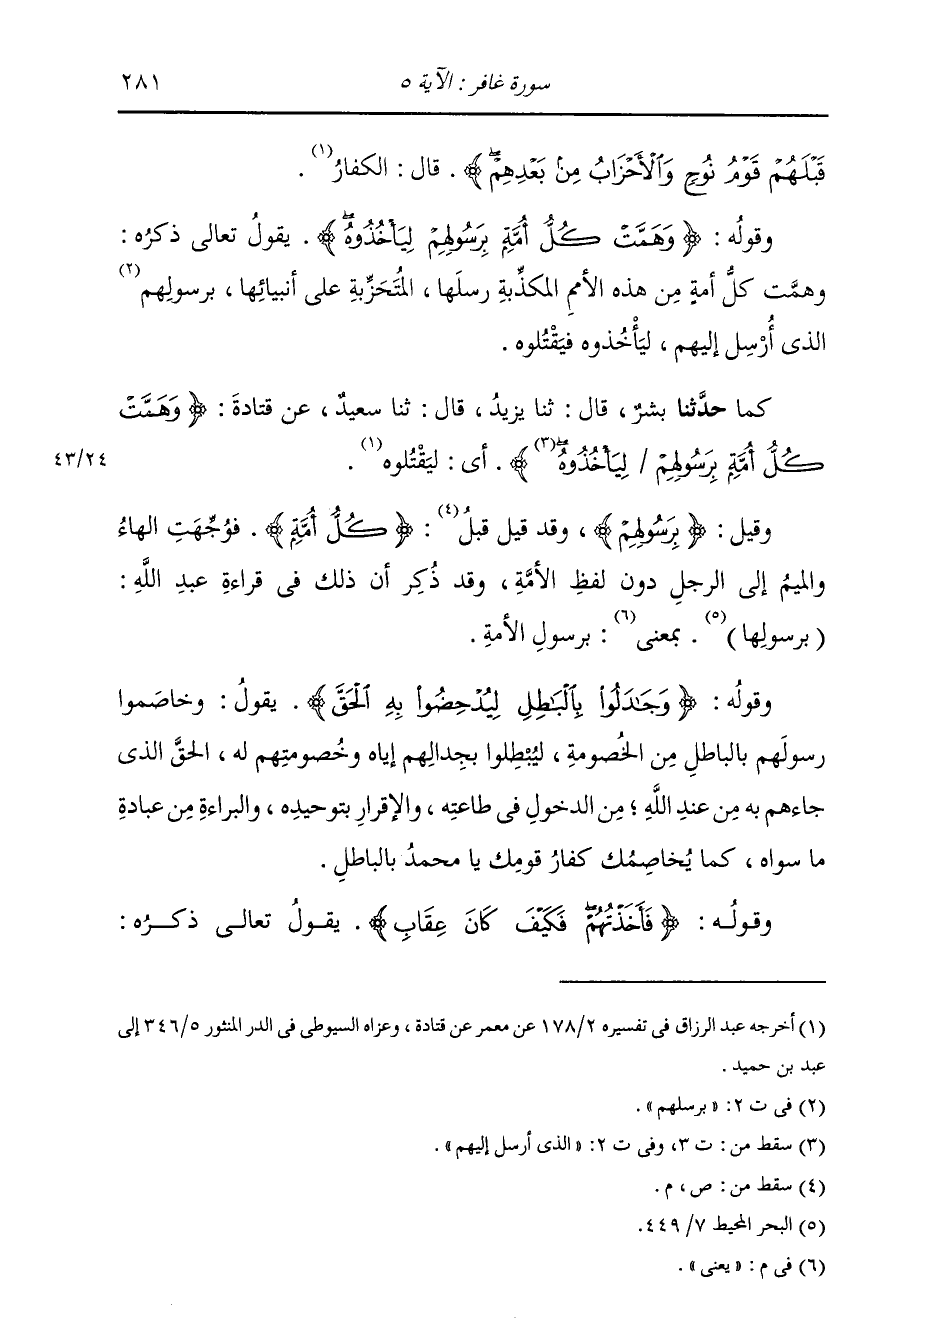 سورة غافر : الآية ٥ ٢٨١
قَبْلَهُمْ قَوْمُ نُوحٍ وَٱلْأَحْزَابُ مِنۢ بَعْدِهِمْۖ ﴾ . قال : الكفارُ(١) .
وقولُه : ﴿ وَهَمَّتْ كُلُّ أُمَّةٍ بِرَسُولِهِمْ لِيَأْخُذُوهُۖ ﴾ . يقولُ تعالى ذكرُه :
وهمَّت كلُّ أمةٍ مِن هذه الأممِ المكذِّبةِ رسلَها ، المُتَحَزِّبةِ على أنبيائِها ، برسولِهم(٢)
الذى أُرْسِل إليهم ، ليَأْخُذوه فيَقْتُلوه .
كما حدَّثنا بشرٌ ، قال : ثنا يزيدُ ، قال : ثنا سعيدٌ ، عن قتادةَ : ﴿ وَهَمَّتْ
كُلُّ أُمَّةٍ بِرَسُولِهِمْ / لِيَأْخُذُوهُۖ(٣) ﴾ . أى : ليَقْتُلوه(١) . ٤٣/٢٤
وقيل : ﴿ بِرَسُولِهِمْ ﴾ ، وقد قيل قبلُ(٤) : ﴿ كُلُّ أُمَّةٍ ﴾ . فوُجِّهَتِ الهاءُ
والميمُ إلى الرجلِ دون لفظِ الأمَّةِ ، وقد ذُكِر أن ذلك فى قراءةِ عبدِ اللَّهِ :
( برسولِها )(٥) . بمعنى(٦) : برسولِ الأمةِ .
وقولُه : ﴿ وَجَٰدَلُوا۟ بِٱلْبَٰطِلِ لِيُدْحِضُوا۟ بِهِ ٱلْحَقَّ ﴾ . يقولُ : وخاصَموا
رسولَهم بالباطلِ مِن الخُصومةِ ، ليُبْطِلوا بجدالِهم إياه وخُصومتِهم له ، الحقَّ الذى
جاءهم به مِن عندِ اللَّهِ ؛ مِن الدخولِ فى طاعتِه ، والإقرارِ بتوحيدِه ، والبراءةِ مِن عبادةِ
ما سواه ، كما يُخاصِمُك كفارُ قومِك يا محمدُ بالباطلِ .
وقولُه : ﴿ فَأَخَذْتُهُمْۖ فَكَيْفَ كَانَ عِقَابِ ﴾ . يقولُ تعالى ذكرُه :
(١) أخرجه عبد الرزاق فى تفسيره ١٧٨/٢ عن معمر عن قتادة ، وعزاه السيوطى فى الدر المنثور ٣٤٦/٥ إلى
عبد بن حميد .
(٢) فى ت ٢: « برسلهم » .
(٣) سقط من : ت ٣، وفى ت ٢: « الذى أرسل إليهم » .
(٤) سقط من : ص ، م .
(٥) البحر المحيط ٧/ ٤٤٩.
(٦) فى م : « يعنى » .